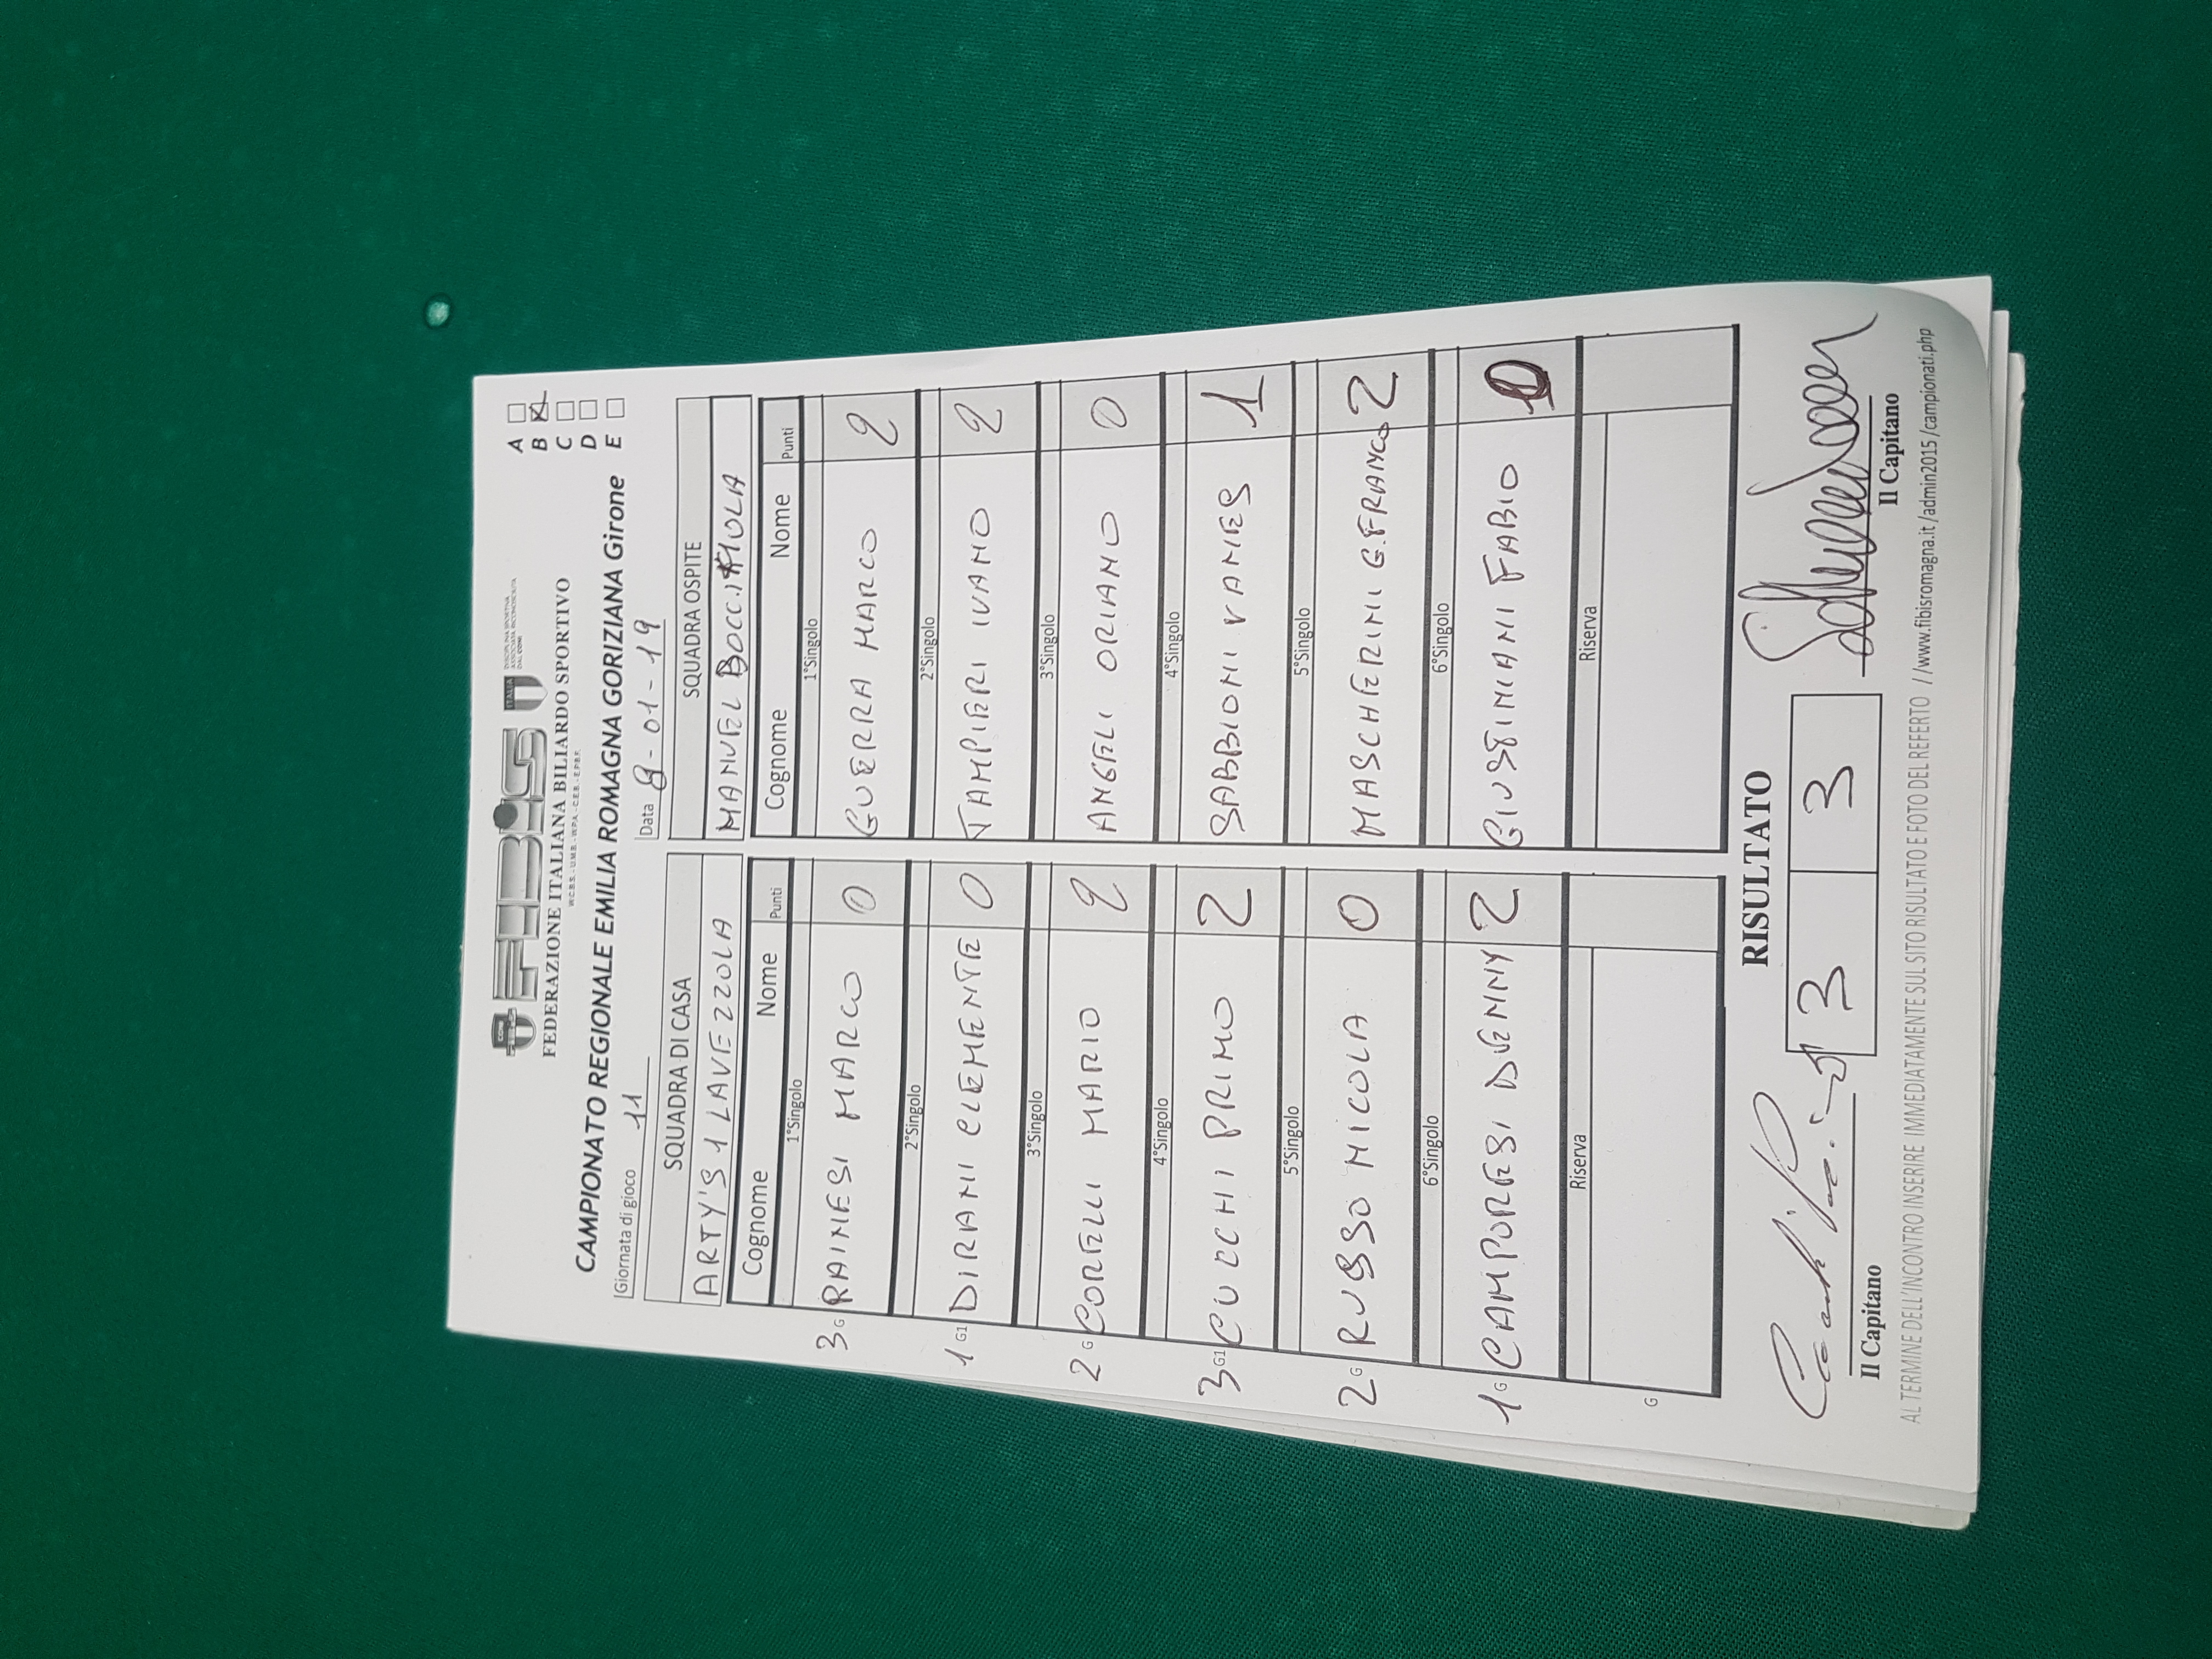 FIBiS
ITALIA
FEDERAZIONE ITALIANA BILIARDO SPORTIVO
CAMPIONATO REGIONALE EMILIA ROMAGNA GORIZIANA Girone
A
B
C
D
E
Giornata di gioco 11
Data 8-01-19
SQUADRA DI CASA SQUADRA OSPITE
ARTY'S 1 LAVEZZOLA MANUEL BOCC. IMOLA
Cognome Nome Punti Cognome Nome Punti
1°Singolo 1°Singolo
3 G RAINESI MARCO 0 GUERRA MARCO 2
2°Singolo 2°Singolo
1 G1 DIRANI CLEMENTE 0 TAMPIERI IVANO 2
3°Singolo 3°Singolo
2 G CORELLI MARIO 2 ANGELI ORIANO 0
4°Singolo 4°Singolo
3 G1 CUCCHI PRIMO 2 SABBIONI VANES 1
5°Singolo 5°Singolo
2 G RUSSO NICOLA 0 MASCHERINI G.FRANCO 2
6°Singolo 6°Singolo
1 G CAMPORESI DENNY 2 GIUSTINIANI FABIO 0
Riserva Riserva
G
RISULTATO
3 3
Il Capitano Il Capitano
AL TERMINE DELL'INCONTRO INSERIRE IMMEDIATAMENTE SUL SITO RISULTATO E FOTO DEL REFERTO //www.fibisromagna.it/admin2015/campionati.php